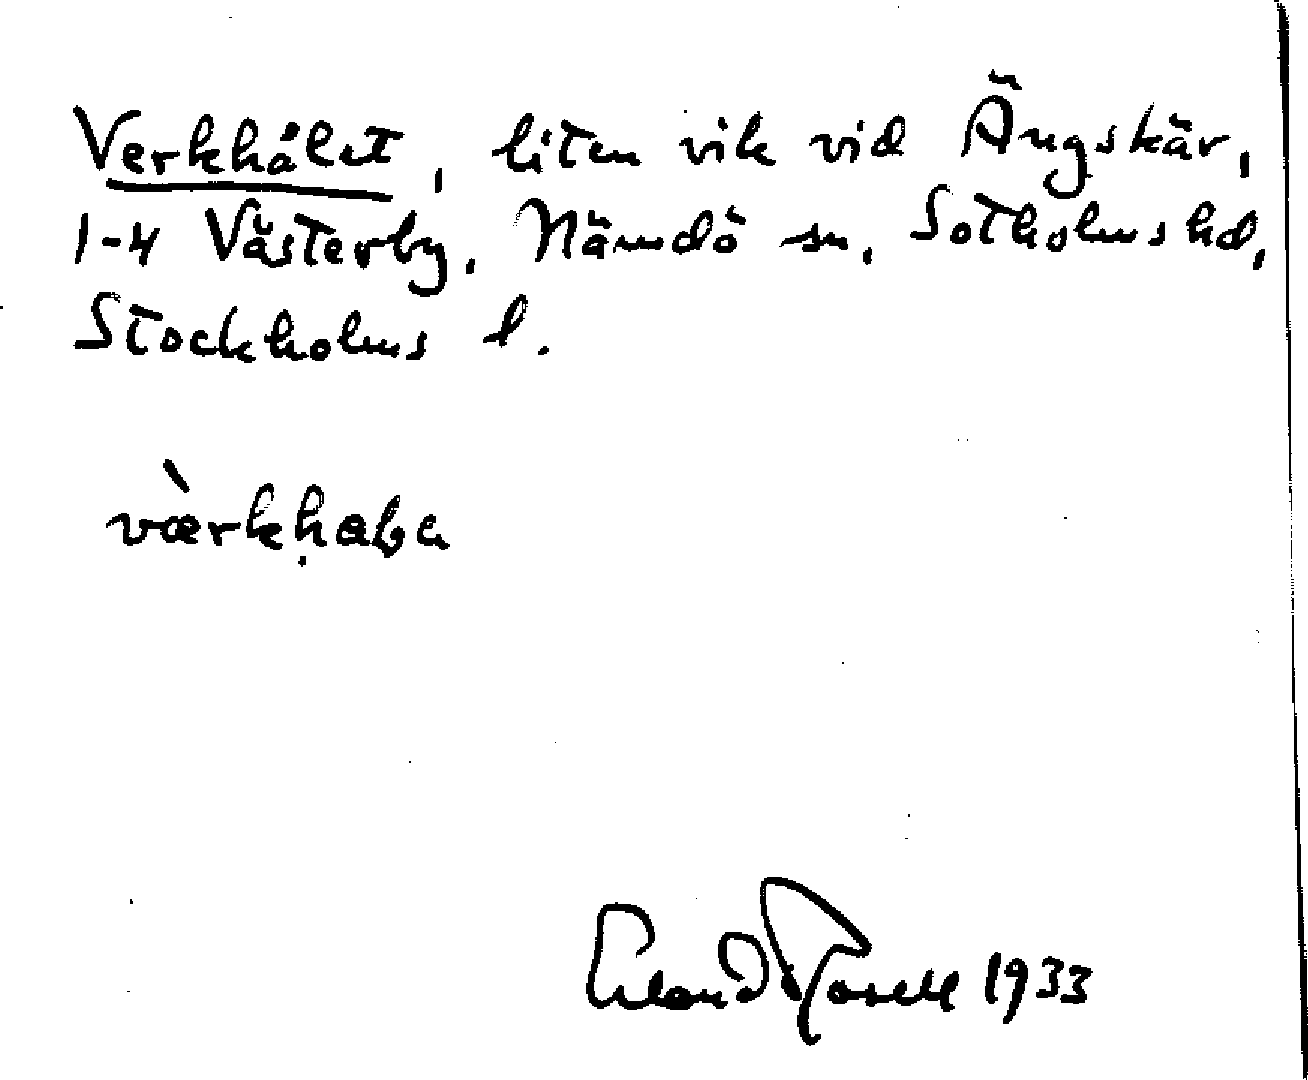 Verkhålet, liten vik vid Ängskär,
1-4 Västerby, Nämdö sn, Sotholms hd,
Stockholms l.
Erland Rosell 1933